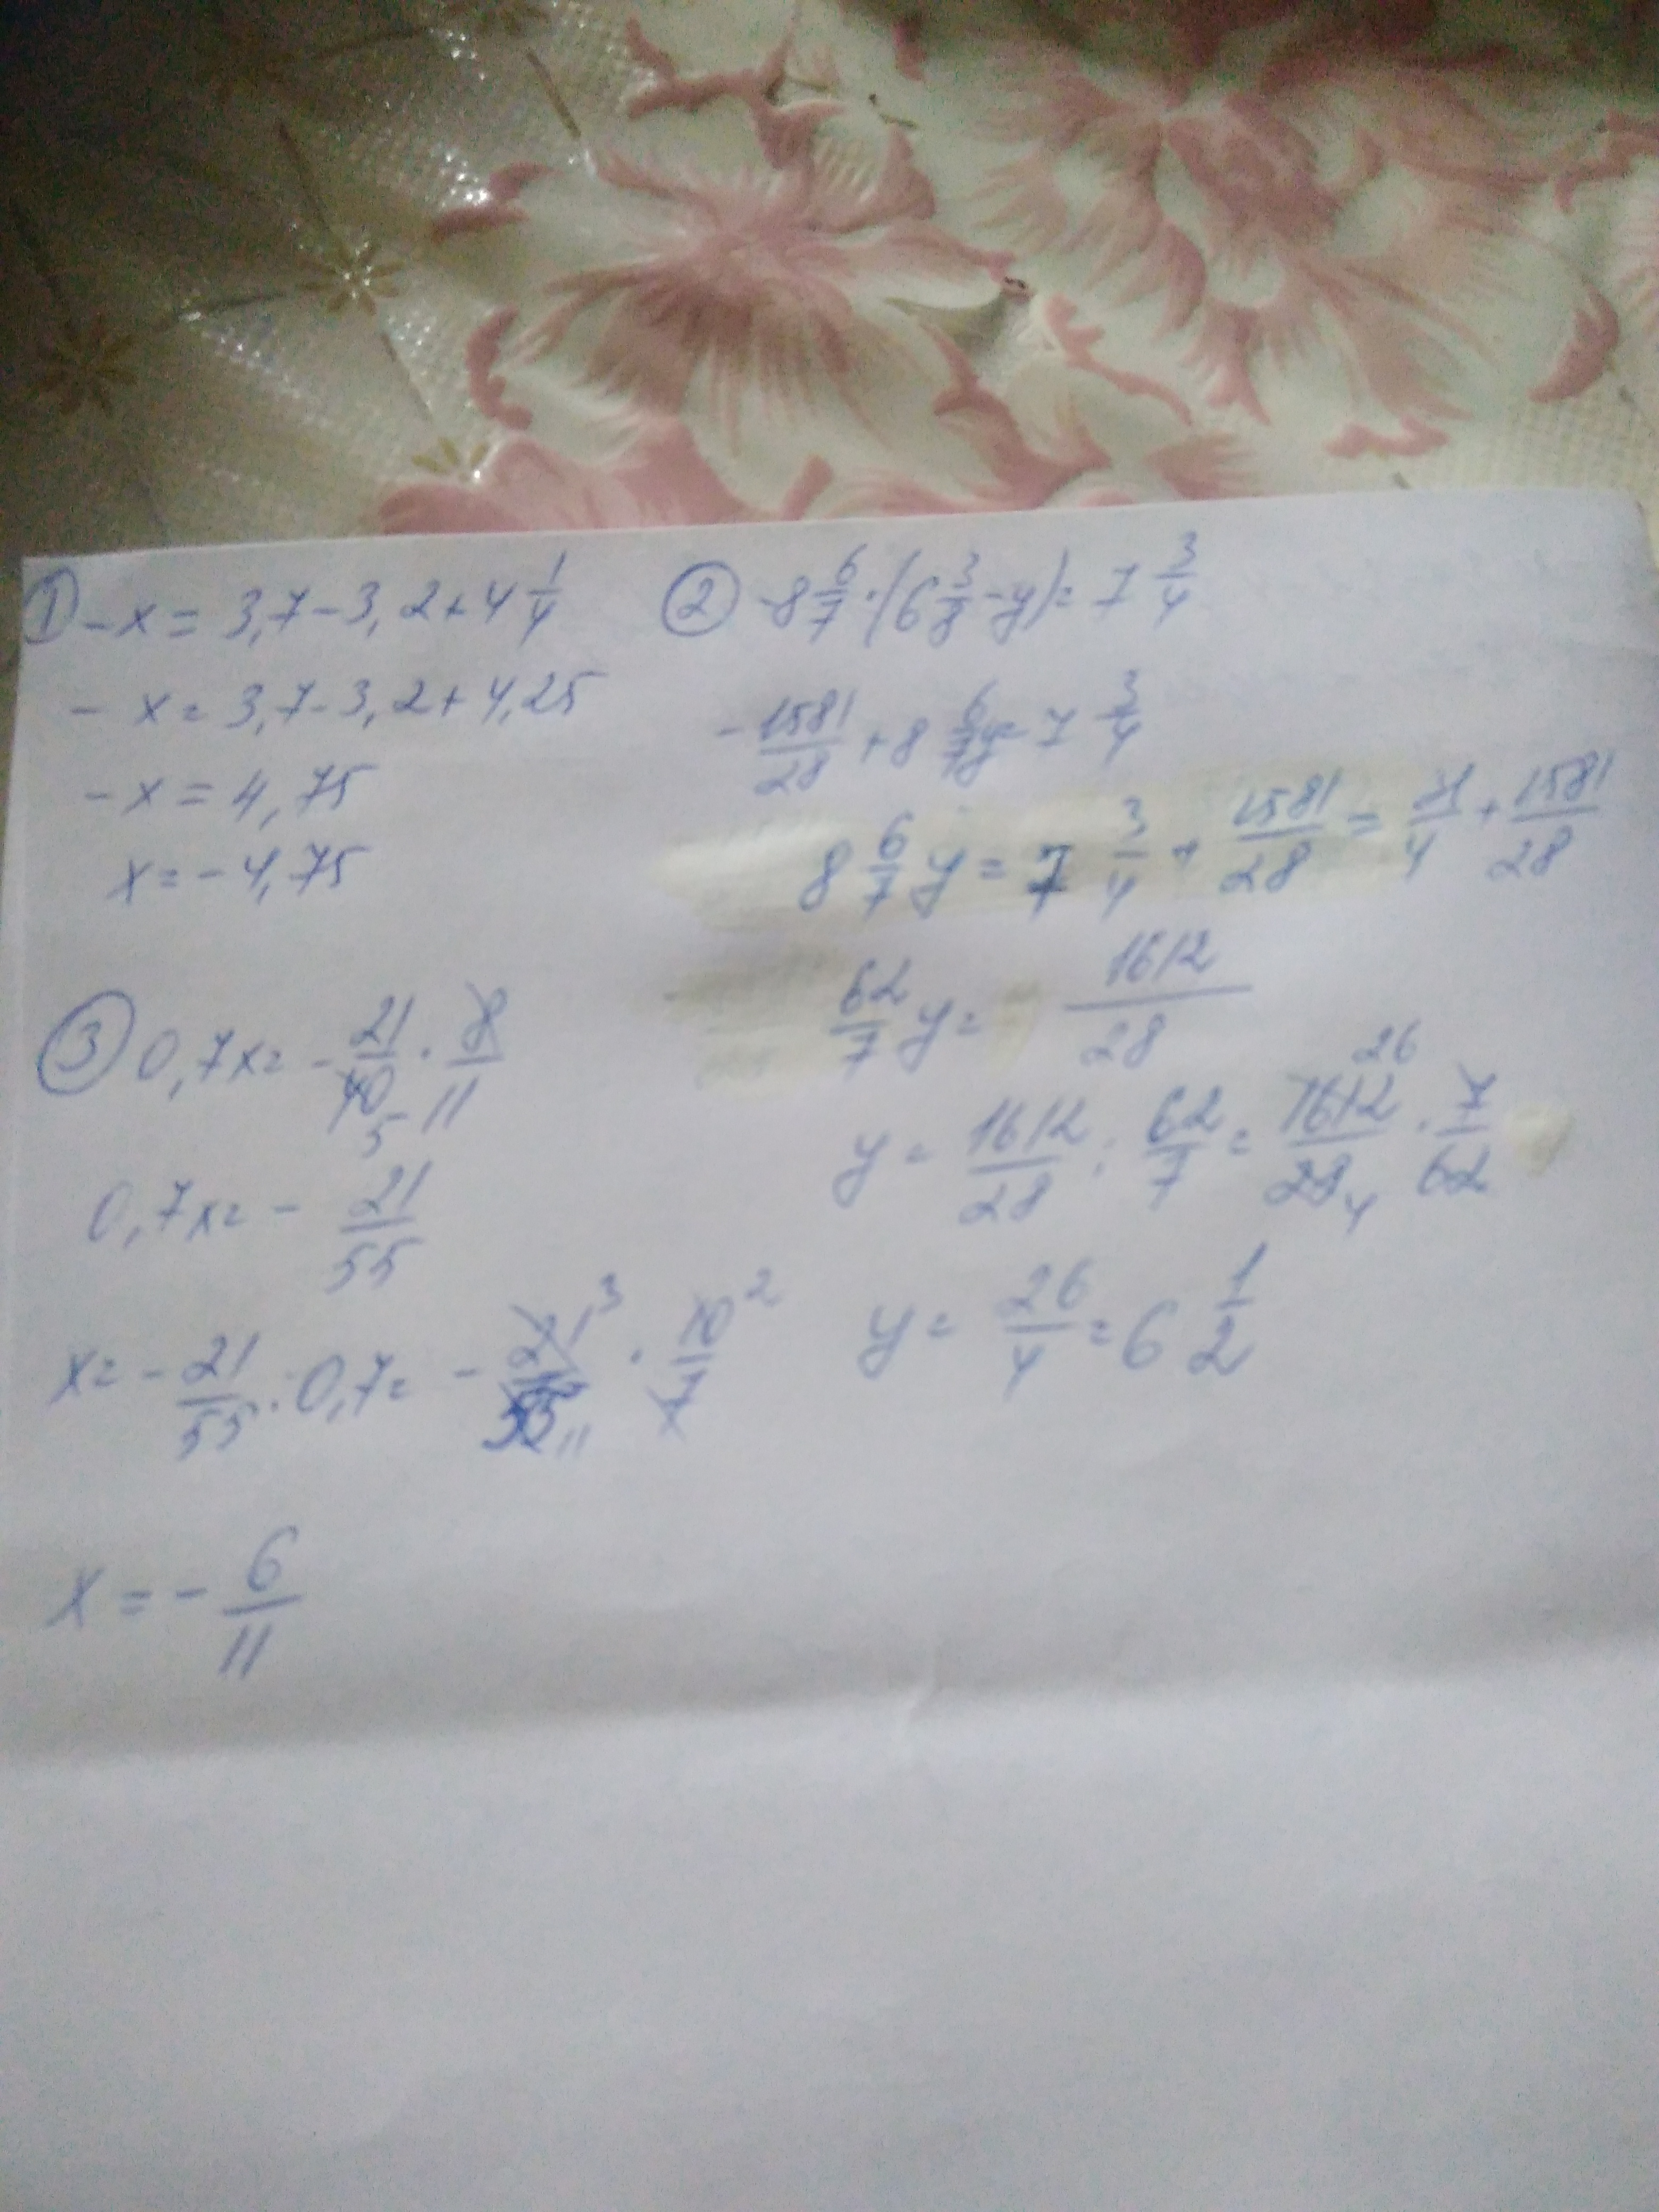 ① -x = 3,7-3,2+4 1/4
- x = 3,7-3,2+4,25
-x = 4,75
x = -4,75
② -8 6/7 · (6 3/8 - y) = 7 3/4
- 1581/28 + 8 6/7 y = 7 3/4
8 6/7 y = 7 3/4 + 1581/28 = 31/4 + 1581/28
62/7 y = 1612/28
y = 1612/28 : 62/7 = 1612 26/28 4 · 7/62
y = 26/4 = 6 1/2
③ 0,7x = - 21/40 5 · 8/11
0,7x = - 21/55
x = - 21/55 : 0,7 = - 21 3/55 11 · 10 2/7
x = - 6/11